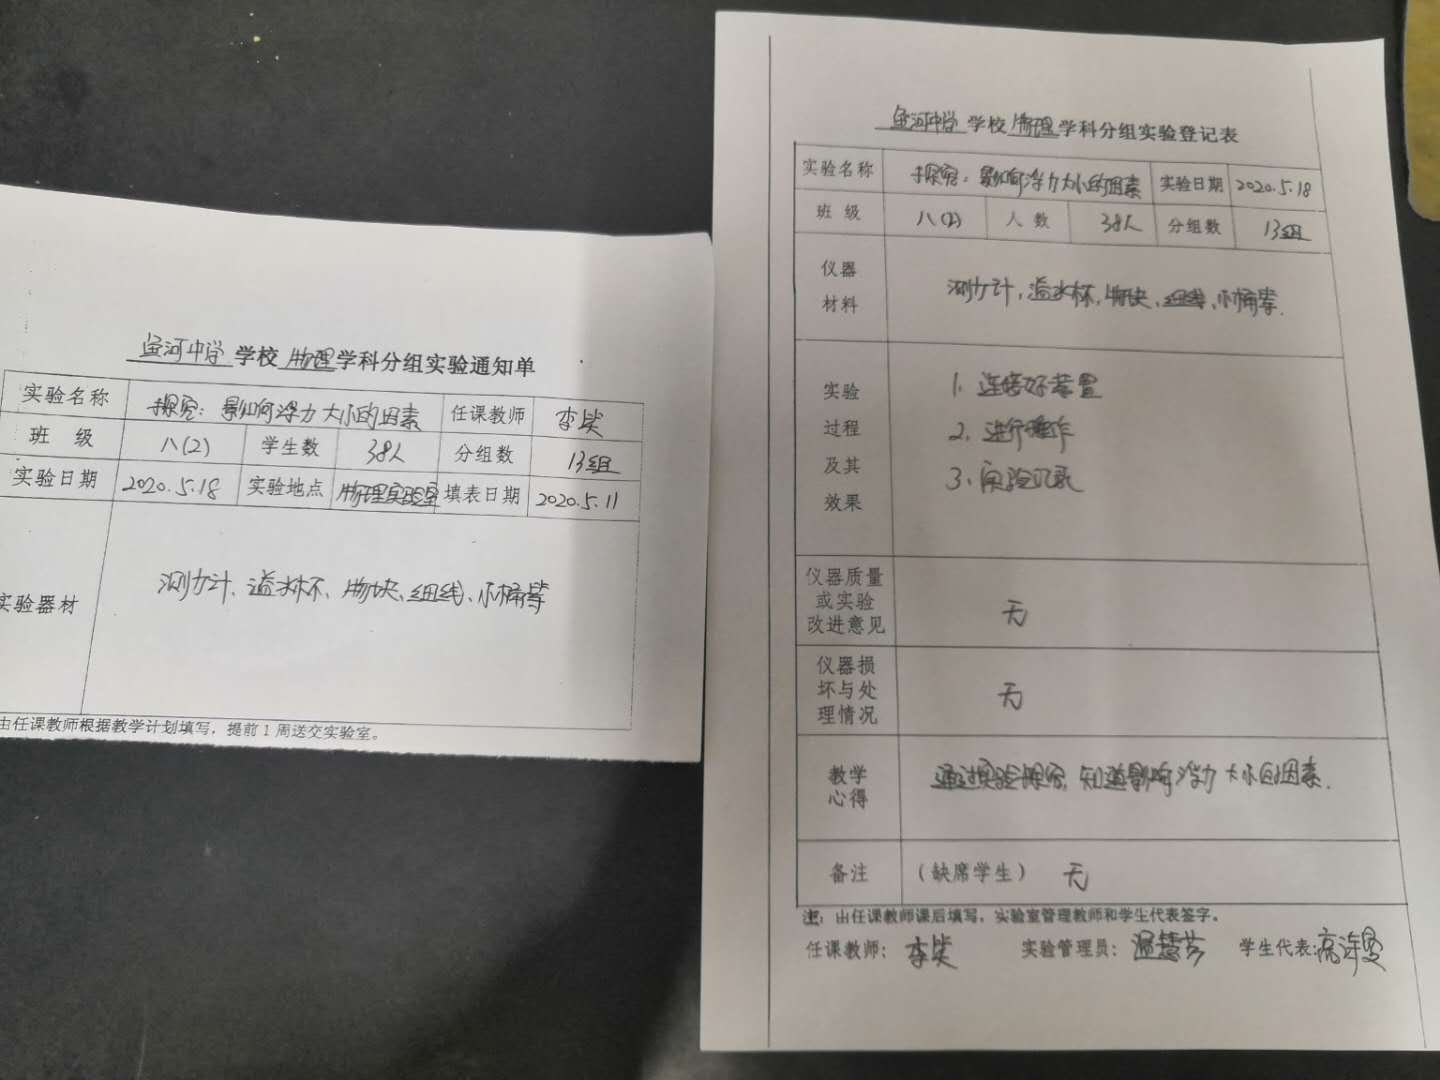 鱼河中学 学校 物理 学科分组实验通知单
实验名称 探究：影响浮力大小的因素 任课教师 李
班 级 八(2) 学生数 38人 分组数 13组
实验日期 2020.5.18 实验地点 物理实验室 填表日期 2020.5.11
实验器材 测力计、溢水杯、物块、细线、小桶等
由任课教师根据教学计划填写，提前1周送交实验室。
鱼河中学 学校 物理 学科分组实验登记表
实验名称 探究：影响浮力大小的因素 实验日期 2020.5.18
班 级 八(2) 人 数 38人 分组数 13组
仪器
材料
测力计、溢水杯、物块、细线、小桶等.
实验
过程
及其
效果
1、连接好装置
2、进行操作
3、实验记录
仪器质量
或实验
改进意见
无
仪器损
坏与处
理情况
无
教学
心得
通过实验探究，知道影响浮力大小的因素.
备注 （缺席学生） 无
注：由任课教师课后填写，实验室管理教师和学生代表签字。
任课教师：李 实验管理员：温慧芳 学生代表：高